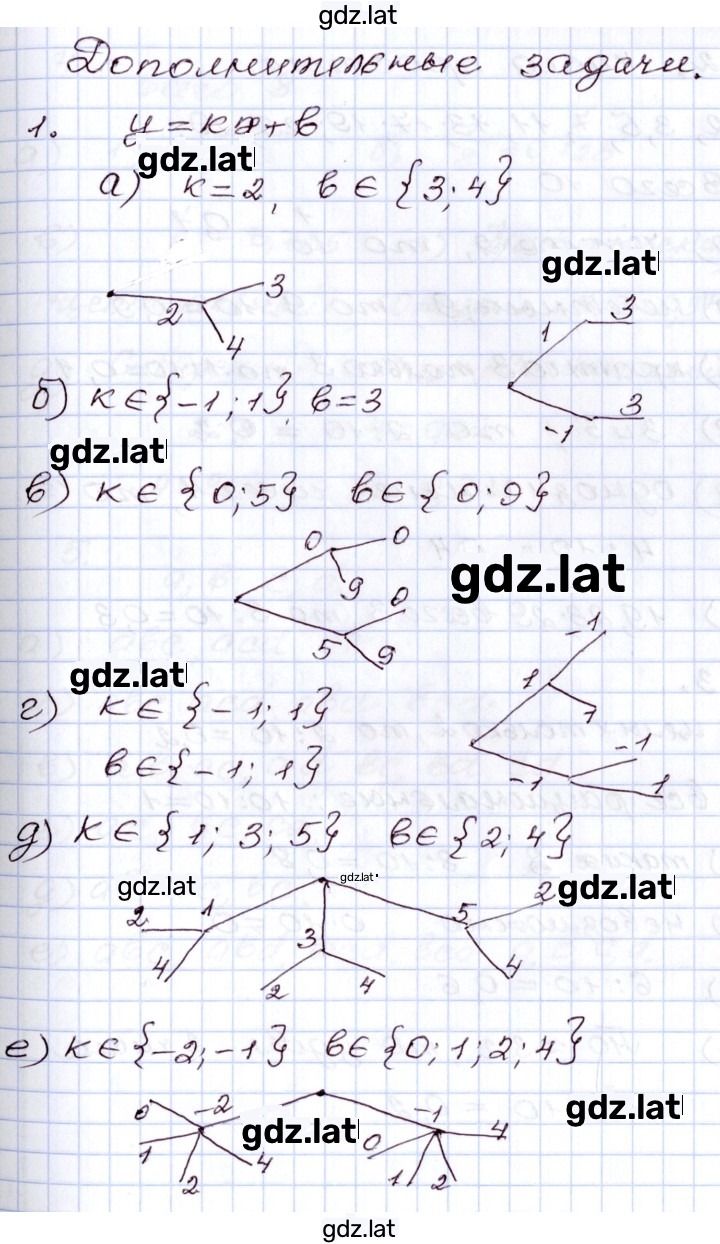 gdz.lat
Дополнительные задачи.
1. y = kx + b
gdz.lat
а) k = 2, b ∈ {3; 4}
gdz.lat
2 3 4
1 3
-1 3
б) k ∈ {-1; 1}, b = 3
gdz.lat
в) k ∈ {0; 5} b ∈ {0; 9}
0 0 9
5 0 9
gdz.lat
gdz.lat
г) k ∈ {-1; 1}
b ∈ {-1; 1}
1 -1 1
-1 -1 1
д) k ∈ {1; 3; 5} b ∈ {2; 4}
gdz.lat gdz.lat gdz.lat
1 2 4
3 2 4
5 2 4
е) k ∈ {-2; -1} b ∈ {0; 1; 2; 4}
-2 0 1 2 4
-1 0 1 2 4
gdz.lat gdz.lat
gdz.lat